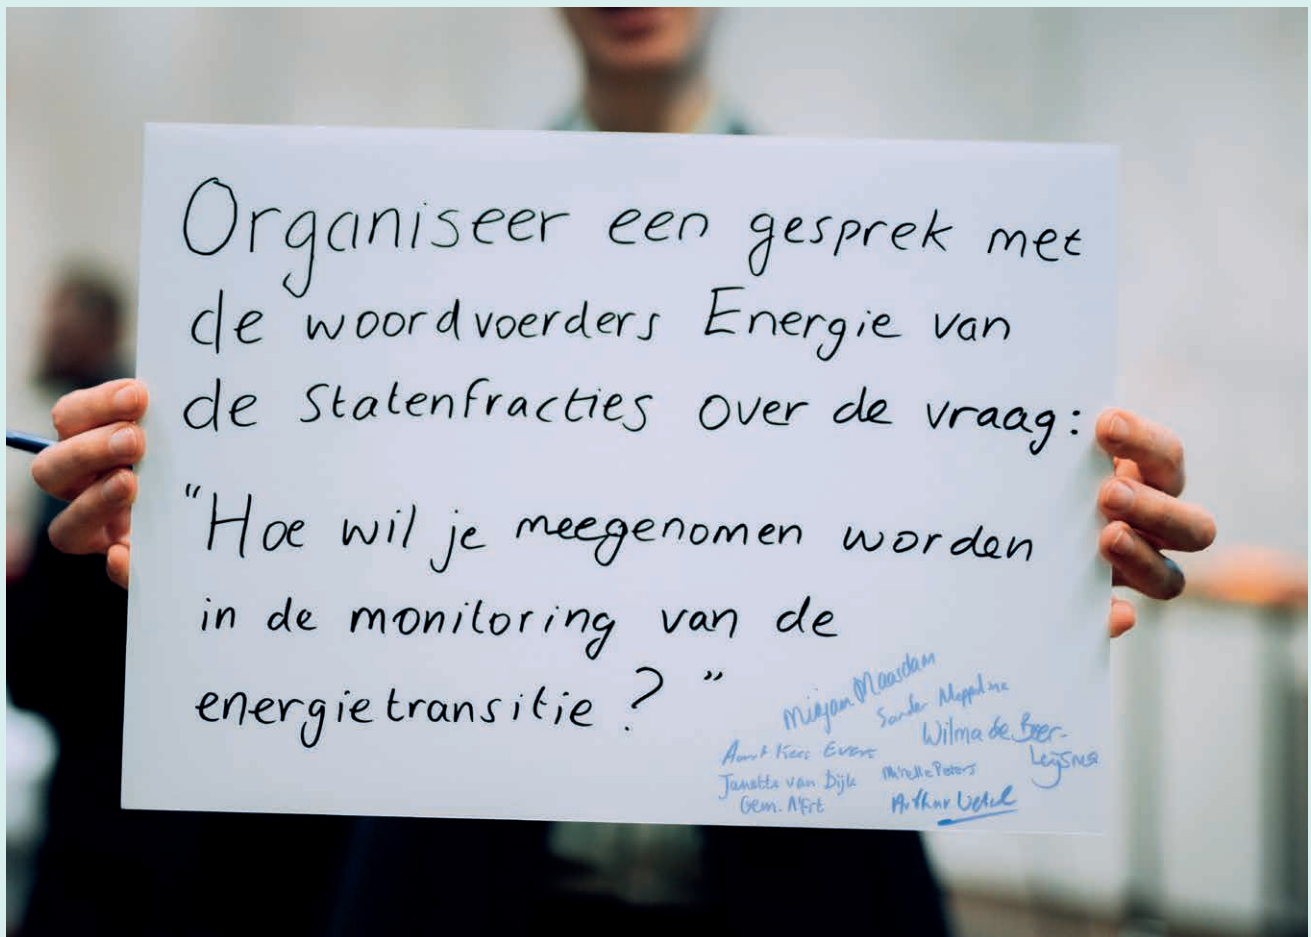 Organiseer een gesprek met
de woordvoerders Energie van
de Statenfracties over de vraag:
"Hoe wil je meegenomen worden
in de monitoring van de
energietransitie? "
Mirjam Maasdam
Sander
Wilma de Boer-
Leijsner
Aart Kees Evers
Janette van Dijk
Gem. A'frt
Mirelle Peters
Arthur